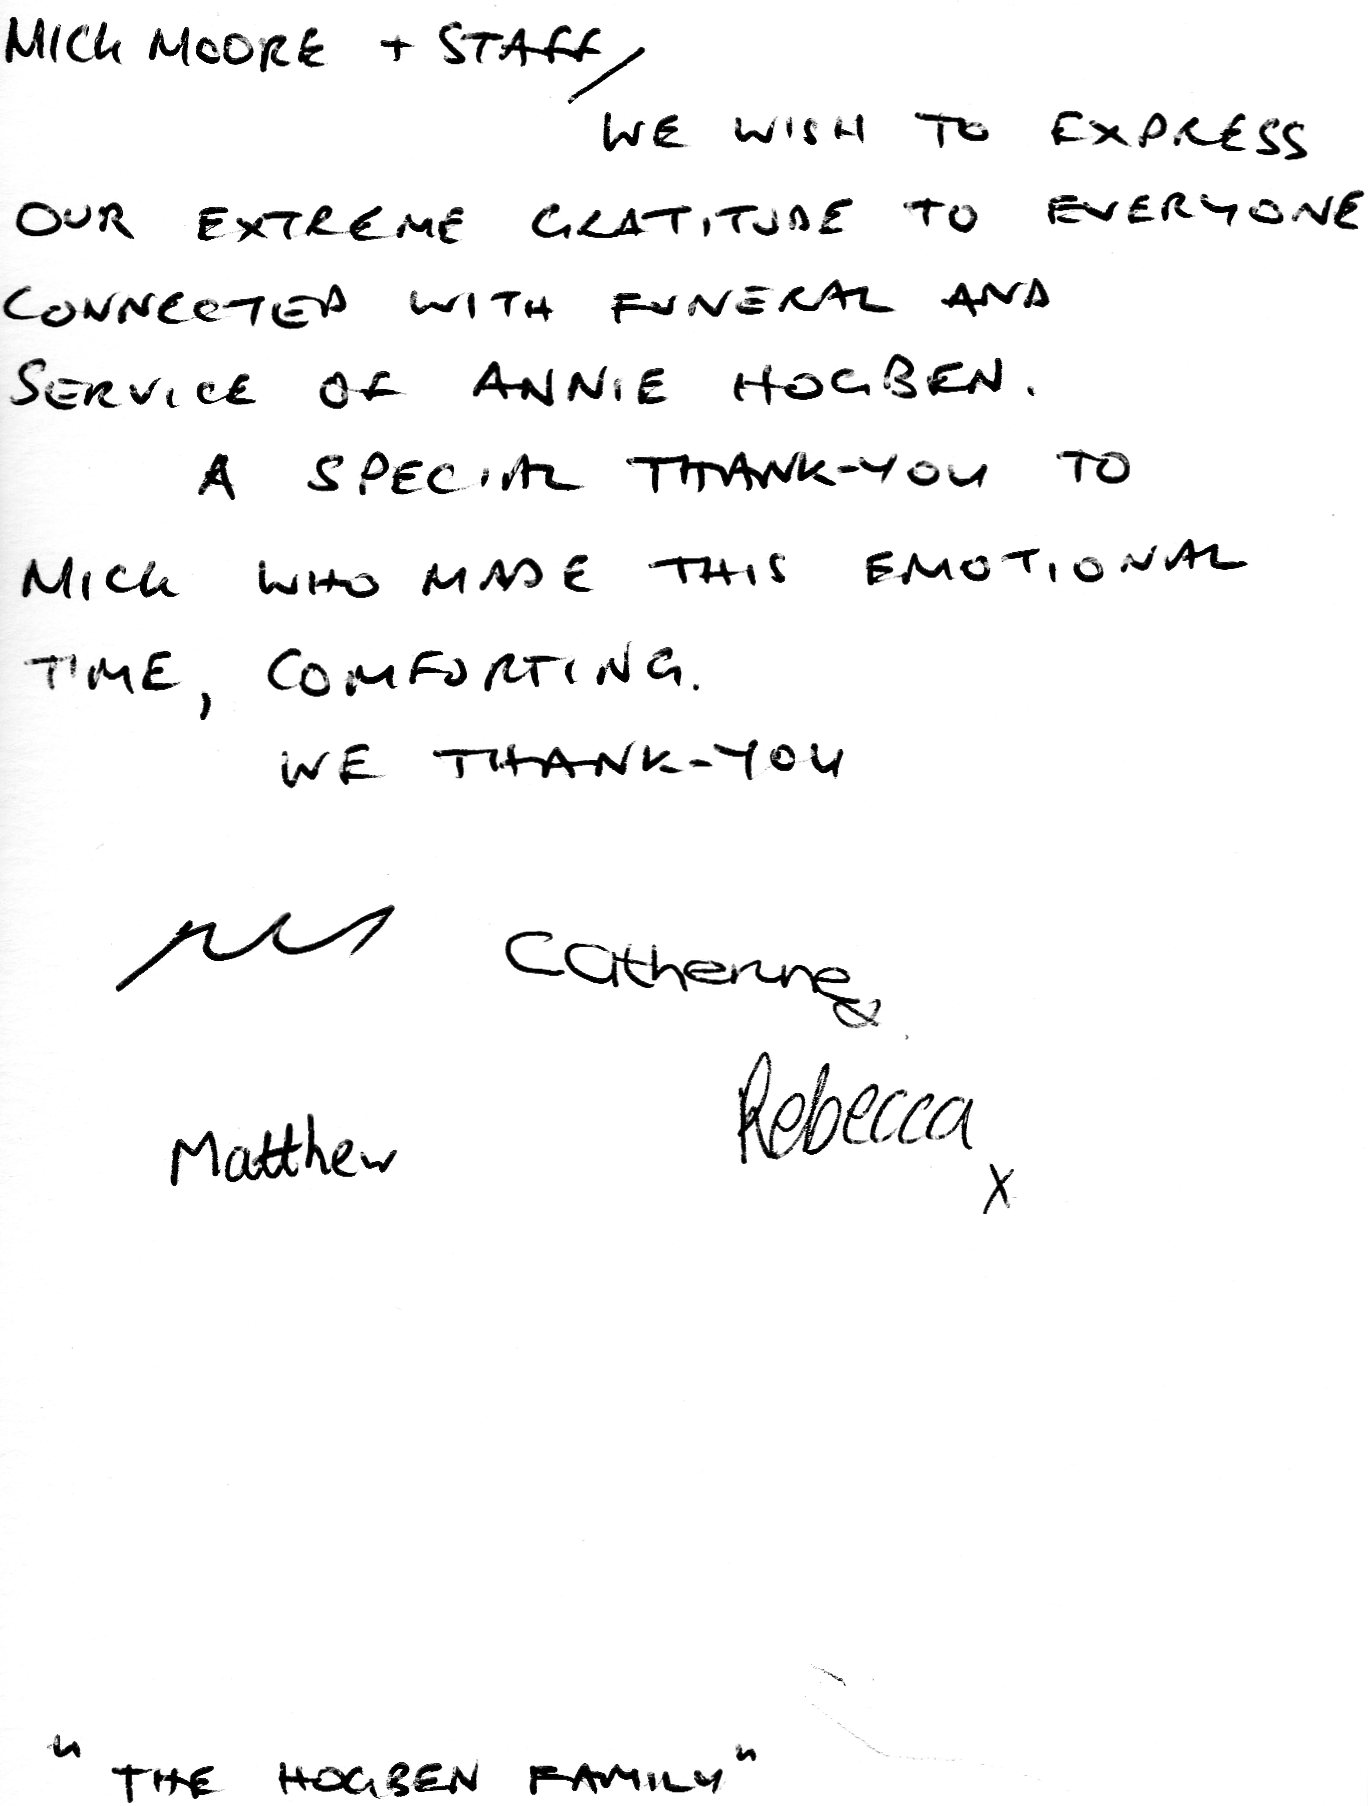 MICK MOORE + STAFF/
WE WISH TO EXPRESS
OUR EXTREME GRATITUDE TO EVERYONE
CONNECTED WITH FUNERAL AND
SERVICE OF ANNIE HOGBEN.
A SPECIAL THANK-YOU TO
MICK WHO MADE THIS EMOTIONAL
TIME, COMFORTING.
WE THANK-YOU
Catherine
Rebecca
x
Matthew
"THE HOGBEN FAMILY"